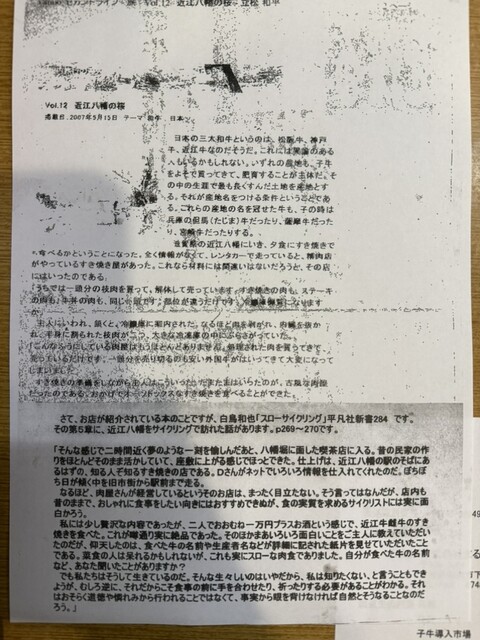 セカンドライフ 旅 Vol.12 近江八幡の桜 立松 和平
Vol.12 近江八幡の桜
掲載日:2007年5月15日 テーマ 和牛 日本
日本の三大和牛というのは、松阪牛、神戸
牛、近江牛なのだそうだ。これには異論のある
人もいるかもしれない。いずれの産地も、子牛
をよそで買ってきて、肥育することが主体だ。そ
の中の生涯で最も長くすんだ土地を産地とす
る。それが産地名をつける条件ということであ
る。これらの産地の名を冠せた牛も、子の時は
兵庫の但馬(たじま)牛だったり、薩摩牛だった
り、宮崎牛だったりする。
滋賀県の近江八幡にいき、夕食にすき焼きで
も食べるかということになった。全く情報がなくて、レンタカーで走っていると、精肉店
がやっているすき焼き屋があった。これなら材料には間違いはないだろうと、その店
にはいったのである。
「うちでは一頭分の枝肉を買って、解体して売っています。すき焼きの肉も、ステーキ
の肉も、牛丼の肉も、同じ一頭です。部位が違うだけです。冷蔵庫御覧になります
か」
主人にいわれ、頷くと、冷蔵庫に案内された。なるほど皮を剥がれ、内臓を抜か
れ、半身に割られた枝肉が二つ、大きな冷凍庫の中にぶらさがっていた。
「こんなふうにしている肉屋はもうほとんどありません。処理された肉を買ってきて、
売っているだけです。一頭分を売り切るのも安い外国牛がはいってきて大変になって
しまいました」
すき焼きの準備をしながら主人はこういった。たまたまはいったのが、古風な肉屋
だったのである。おかげでオーソドックスなすき焼きを食べることができた。
さて、お店が紹介されている本のことですが、白鳥和也「スローサイクリング」平凡社新書284 です。
その第5章に、近江八幡をサイクリングで訪れた話があります。p269～270です。
「そんな感じで二時間近く夢のような一刻を愉しんだあと、八幡堀に面した喫茶店に入る。昔の民家の作
りをほとんどそのまま活かしていて、座敷に上がる感じでほっとできた。仕上げは、近江八幡の駅のそばにあ
るはずの、知る人ぞ知るすき焼きの店である。Dさんがネットでいろいろ情報を仕入れてくれたのだ。ぼちぼ
ち日が傾く中を旧市街から駅前まで走る。
なるほど、肉屋さんが経営しているというそのお店は、まったく目立たない。そう言ってはなんだが、店内も
昔のままで、おしゃれに食事をしたい向きにはおすすめできぬが、食の実質を求めるサイクリストには実に面
白かろう。
私には少し贅沢な内容であったが、二人でおおむね一万円プラスお酒という感じで、近江牛雌牛のすき
焼きを食べた。これが噂通り実に絶品であった。そのほかまあいろいろ面白いことをご主人に教えていただい
たのだが、仰天したのは、食べた牛の名前や生産者名などが詳細に記された紙片を見せていただいたこと
である。菜食の人は呆れるかもしれないが、これも実にスローな肉食でありました。自分が食べた牛の名前
など、あなた聞いたことがありますか?
でも私たちはそうして生きているのだ。そんな生々しいのはいやだから、私は知りたくない、と言うこともでき
ようが、むしろ逆に、それだからこそ食事の前に手を合わせたり、祈ったりする必要があることがわかる。それ
はおそらく道徳や憐れみから行われることではなくて、事実から眼を背けなければ自然とそうなることなのだ
ろう。」
子牛導入市場